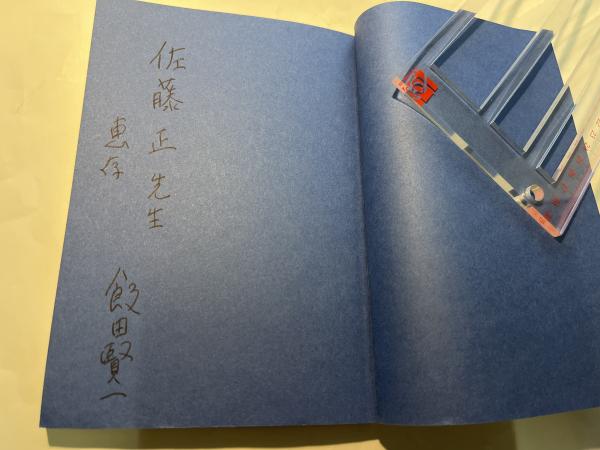 佐藤正先生
恵存
飯田賢一